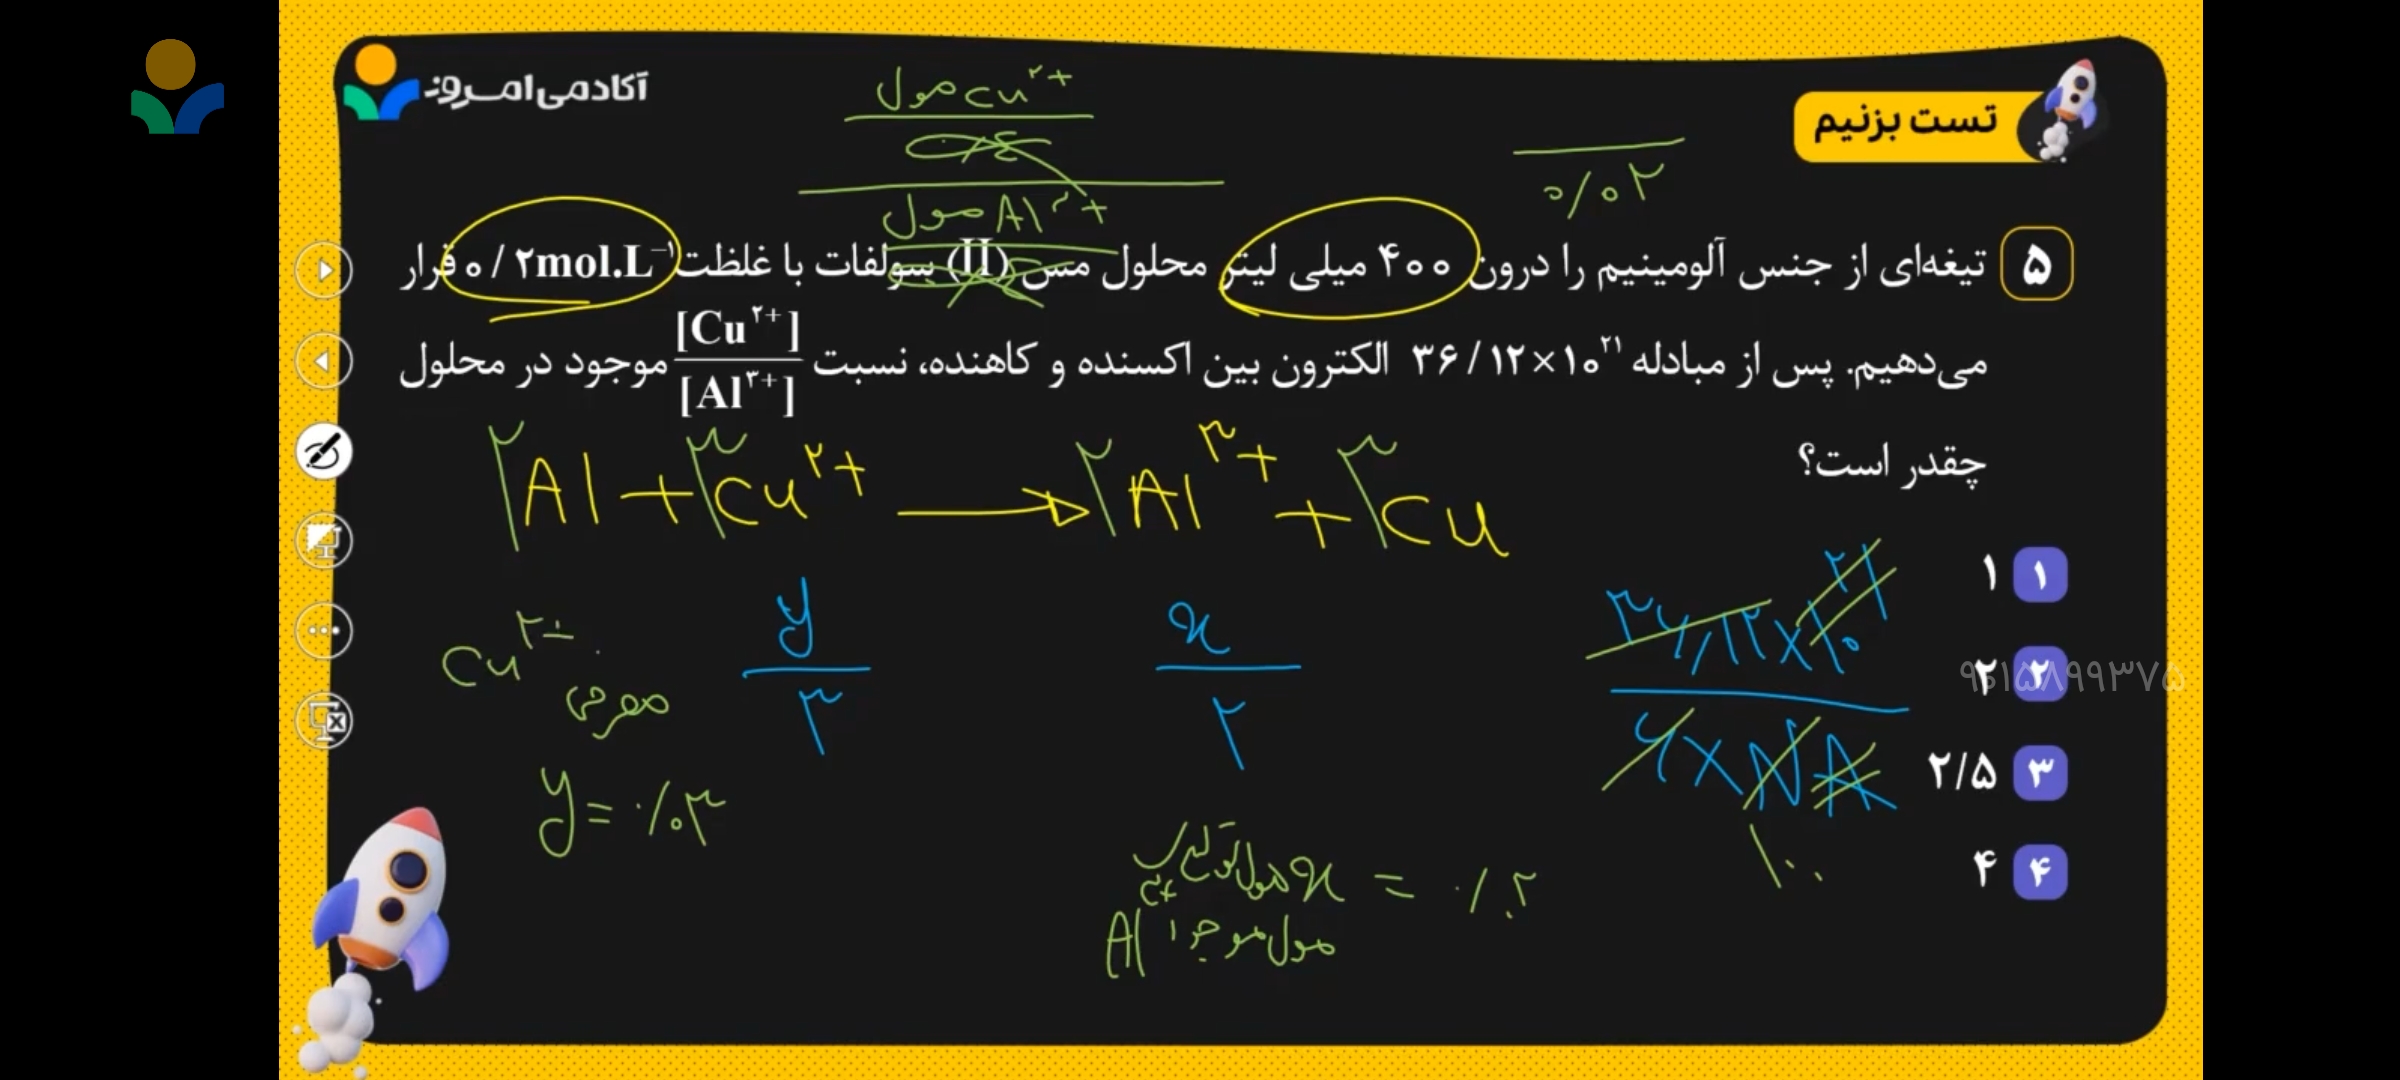 آکادمی امروز
تست بزنیم
مول Cu²⁺
۰/۰۲
مول Al³⁺
۵ تیغه‌ای از جنس آلومینیم را درون ۴۰۰ میلی لیتر محلول مس (II) سولفات با غلظت ۰/۲mol.L⁻¹ قرار
می‌دهیم. پس از مبادله ۳۶/۱۲×۱۰²¹ الکترون بین اکسنده و کاهنده، نسبت [Cu²⁺]/[Al³⁺] موجود در محلول
چقدر است؟
۲Al + ۳Cu²⁺ → ۲Al³⁺ + ۳Cu
۱ ۱
۲ ۲
۳ ۲/۵
۴ ۴
Cu²⁺
مصرفی
y/۳
x/۲
۳۶/۱۲×۱۰²¹
۶×NA
۱۰۰
y = ۰/۰۳
x مول تولیدی = ۰/۰۲
Al³⁺ مول موجود
۹۰۱۵۸۹۹۳۷۵